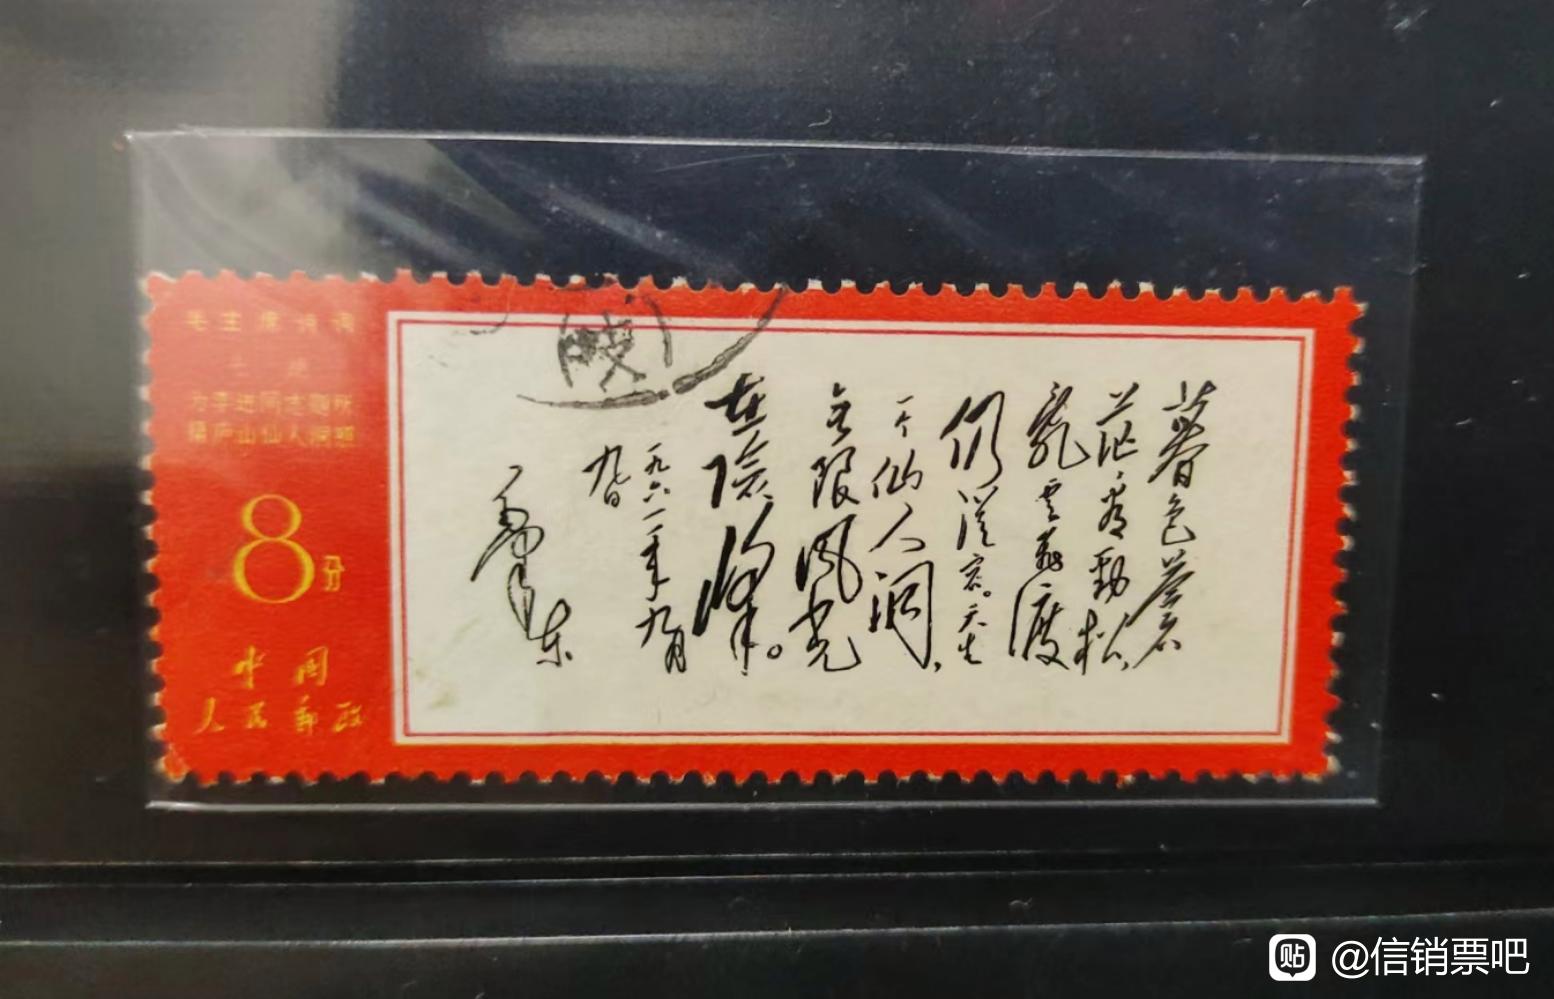 毛主席诗词
七绝
为李进同志题所
摄庐山仙人洞照
8分
中国
人民邮政
暮色苍
茫看劲松,
乱云飞渡
仍从容。天生
一个仙人洞,
无限风光
在险峰。
一九六一年九月
九日
毛泽东
@信销票吧